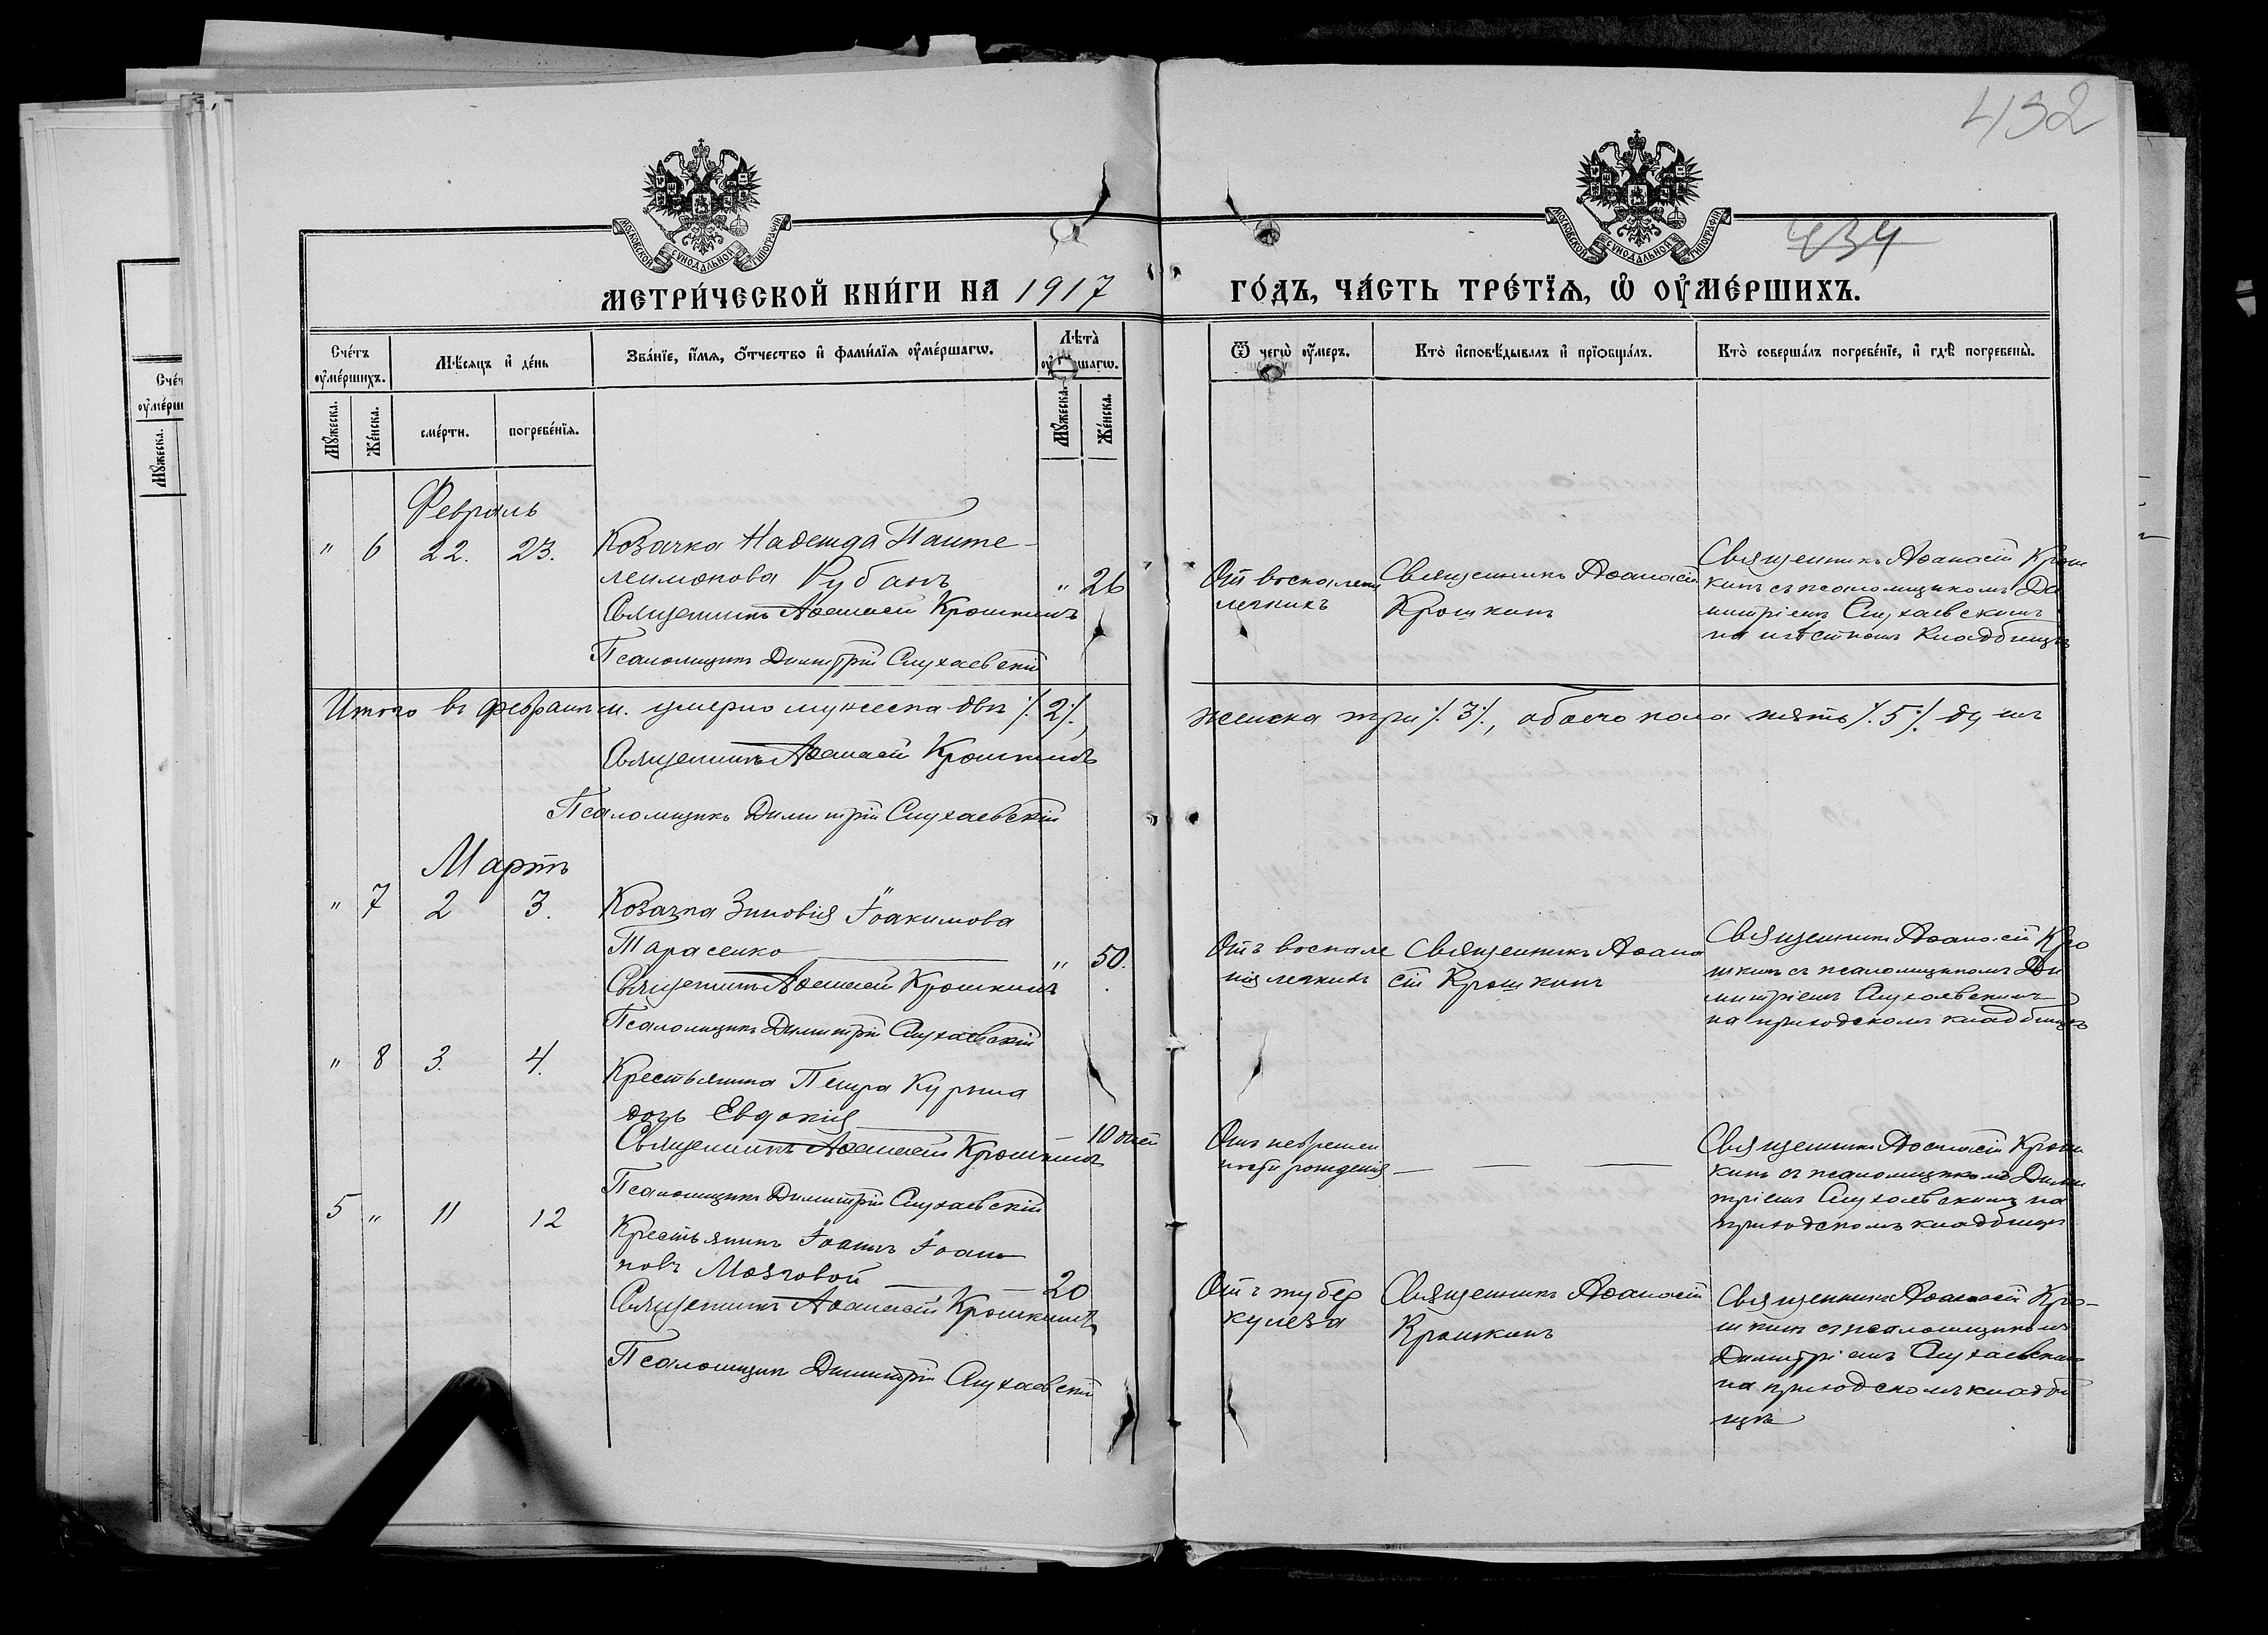 432
434
МОСКОВСКОЙ СѴНОДАЛЬНОЙ ТИПОГРАФІИ
МОСКОВСКОЙ СѴНОДАЛЬНОЙ ТИПОГРАФІИ
МЕТРИ́ЧЕСКОЙ КНИ́ГИ НА 1917 ГО́ДЪ, ЧА́СТЬ ТРЕ́ТЇѦ, Ѡ ОУ҆МЕ́РШИХЪ.
Сче́тъ оу҆ме́ршихъ.
Мѣ́сяцъ и҆ де́нь
Зва́нїе, и҆́мѧ, ѻ҆́тчество и҆ фами́лїѧ оу҆ме́ршагѡ.
Лѣ́та оу҆ме́ршагѡ.
Ѿ чегѡ̀ оу҆́меръ.
Кто̀ и҆сповѣ́дывалъ и҆ прїѻбща́лъ.
Кто̀ соверша́лъ погребе́нїе, и҆ гдѣ̀ погребены̀.
Мꙋ́жеска.
Же́нска.
сме́рти.
погребе́нїѧ.
Мꙋ́жеска.
Же́нска.
Февраль
" 6 22. 23. Козачка Надежда Панте-
леимонова Рубанъ " 26
Священникъ Аѳанасій Крошкинъ
Псаломщикъ Димитрій Слухаевскій
Отъ воспалені
легкихъ
Священникъ Аѳанасій
Крошкинъ
Священникъ Аѳанасій Крош
кинъ съ псаломщикомъ Ди
митріемъ Слухаевскимъ
на мѣстномъ кладбищѣ
Итого въ февралѣ м. умерло мужеска два ./.2./., женска три ./.3./., обоего пола пять ./.5./. душъ
Священникъ Аѳанасій Крошкинъ
Псаломщикъ Димитрій Слухаевскій
Мартъ
" 7 2 3. Козачка Зиновія Іоакимова
Тарасенко " 50.
Священникъ Аѳанасій Крошкинъ
Псаломщикъ Димитрій Слухаевскій
Отъ воспале
нія легкихъ
Священникъ Аѳана
сій Крошкинъ
Священникъ Аѳанасій Кро
шкинъ съ псаломщикомъ Ди
митріемъ Слухаевскимъ
на приходскомъ кладбищѣ
" 8 3. 4. Крестьянина Петра Курыла
дочь Евдокія 10 дней
Священникъ Аѳанасій Крошкинъ
Псаломщикъ Димитрій Слухаевскій
Отъ неврѣмен
ности рожденія
Священникъ Аѳанасій Крош
кинъ съ псаломщикомъ Дими
тріемъ Слухаевскимъ на
приходскомъ кладбищѣ
5 " 11 12 Крестьянинъ Іоаннъ Іоан
новъ Мозговой 20
Священникъ Аѳанасій Крошкинъ
Псаломщикъ Димитрій Слухаевскій
Отъ тубер
кулеза
Священникъ Аѳанасій
Крошкинъ
Священникъ Аѳанасій Кро-
шкинъ съ псаломщикомъ
Димитріемъ Слухаевским
на приходскомъ кладби
щѣ